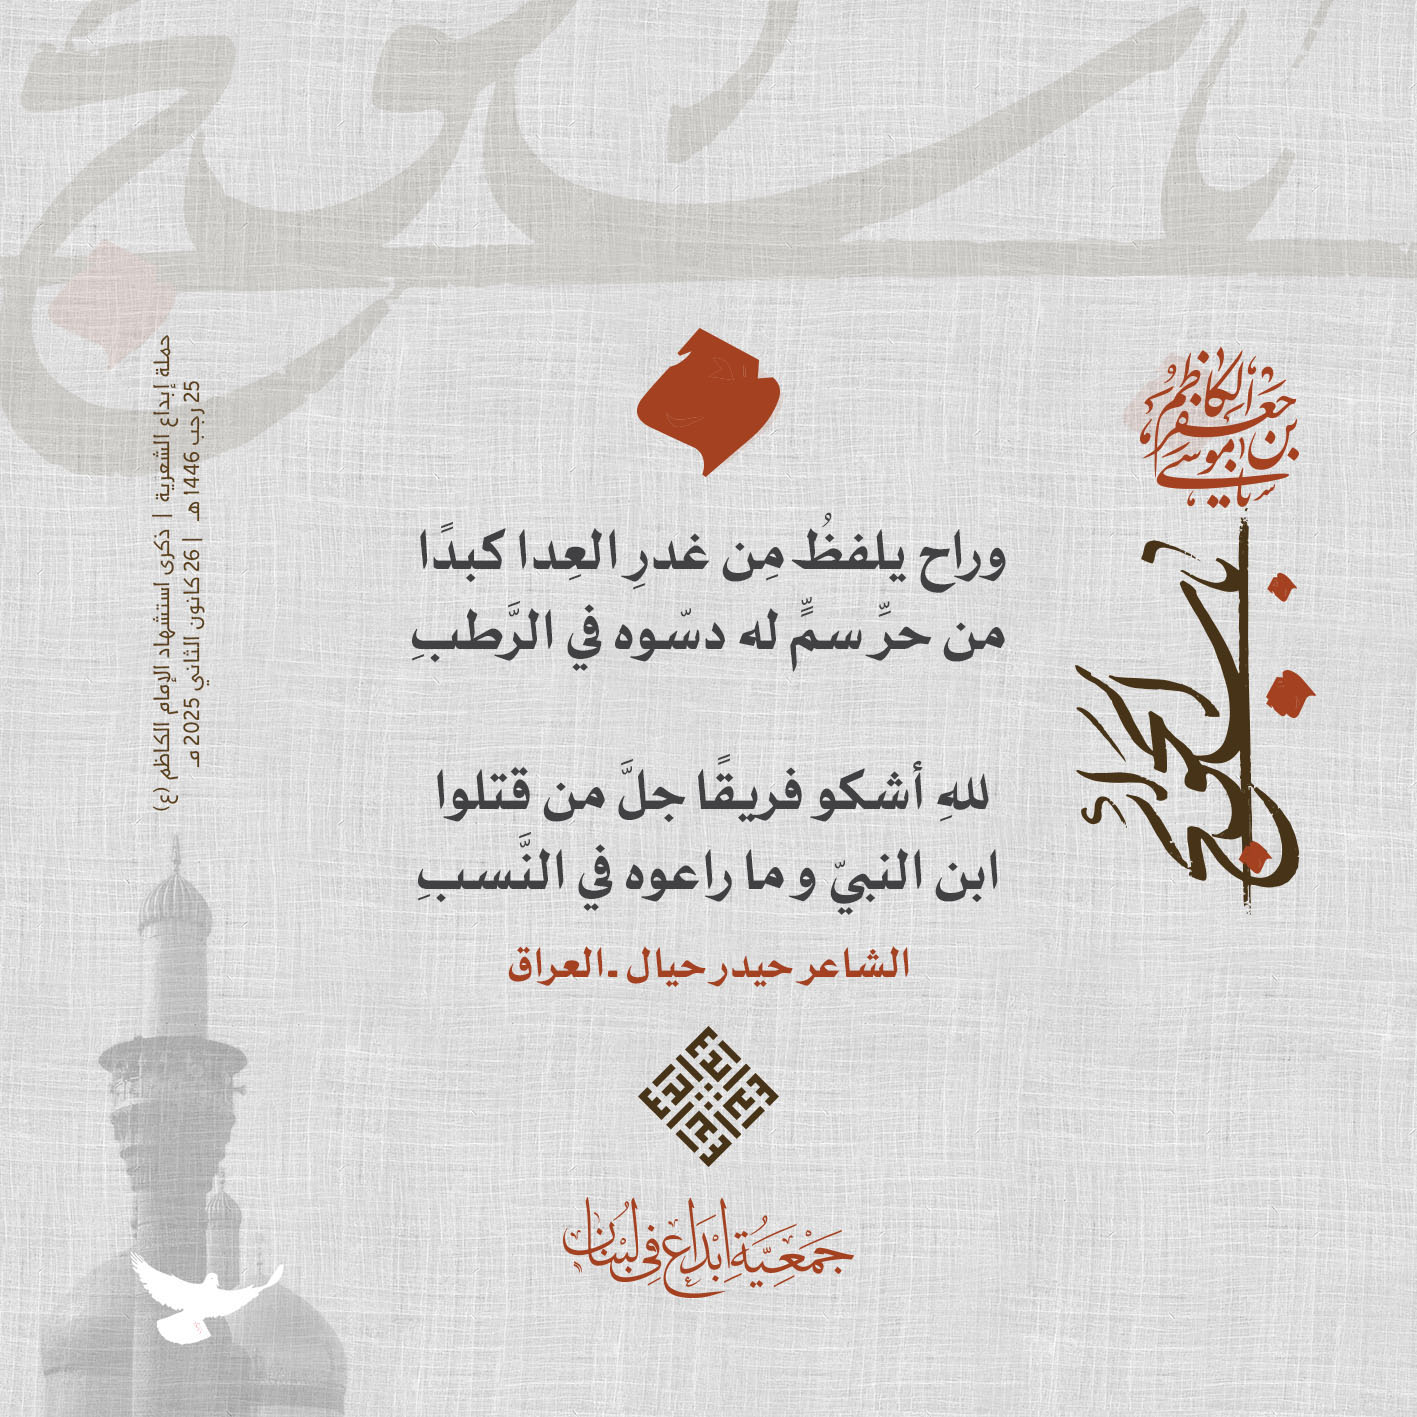 وراح يلفظُ مِن غدرِ العِدا كبدًا
من حرِّ سمٍّ له دسّوه في الرَّطبِ
للهِ أشكو فريقًا جلَّ من قتلوا
ابن النبيّ و ما راعوه في النَّسبِ
الشاعر حيدر حيال ـ العراق
جَمْعِيَّةُ إِبْدَاع فِي لُبْنَان
يا موسى
بن جعفر الكاظم
باب الحوائج
حملة إبداع الشعرية | ذكرى استشهاد الإمام الكاظم (ع)
25 رجب 1446 هـ | 26 كانون الثاني 2025 مـ